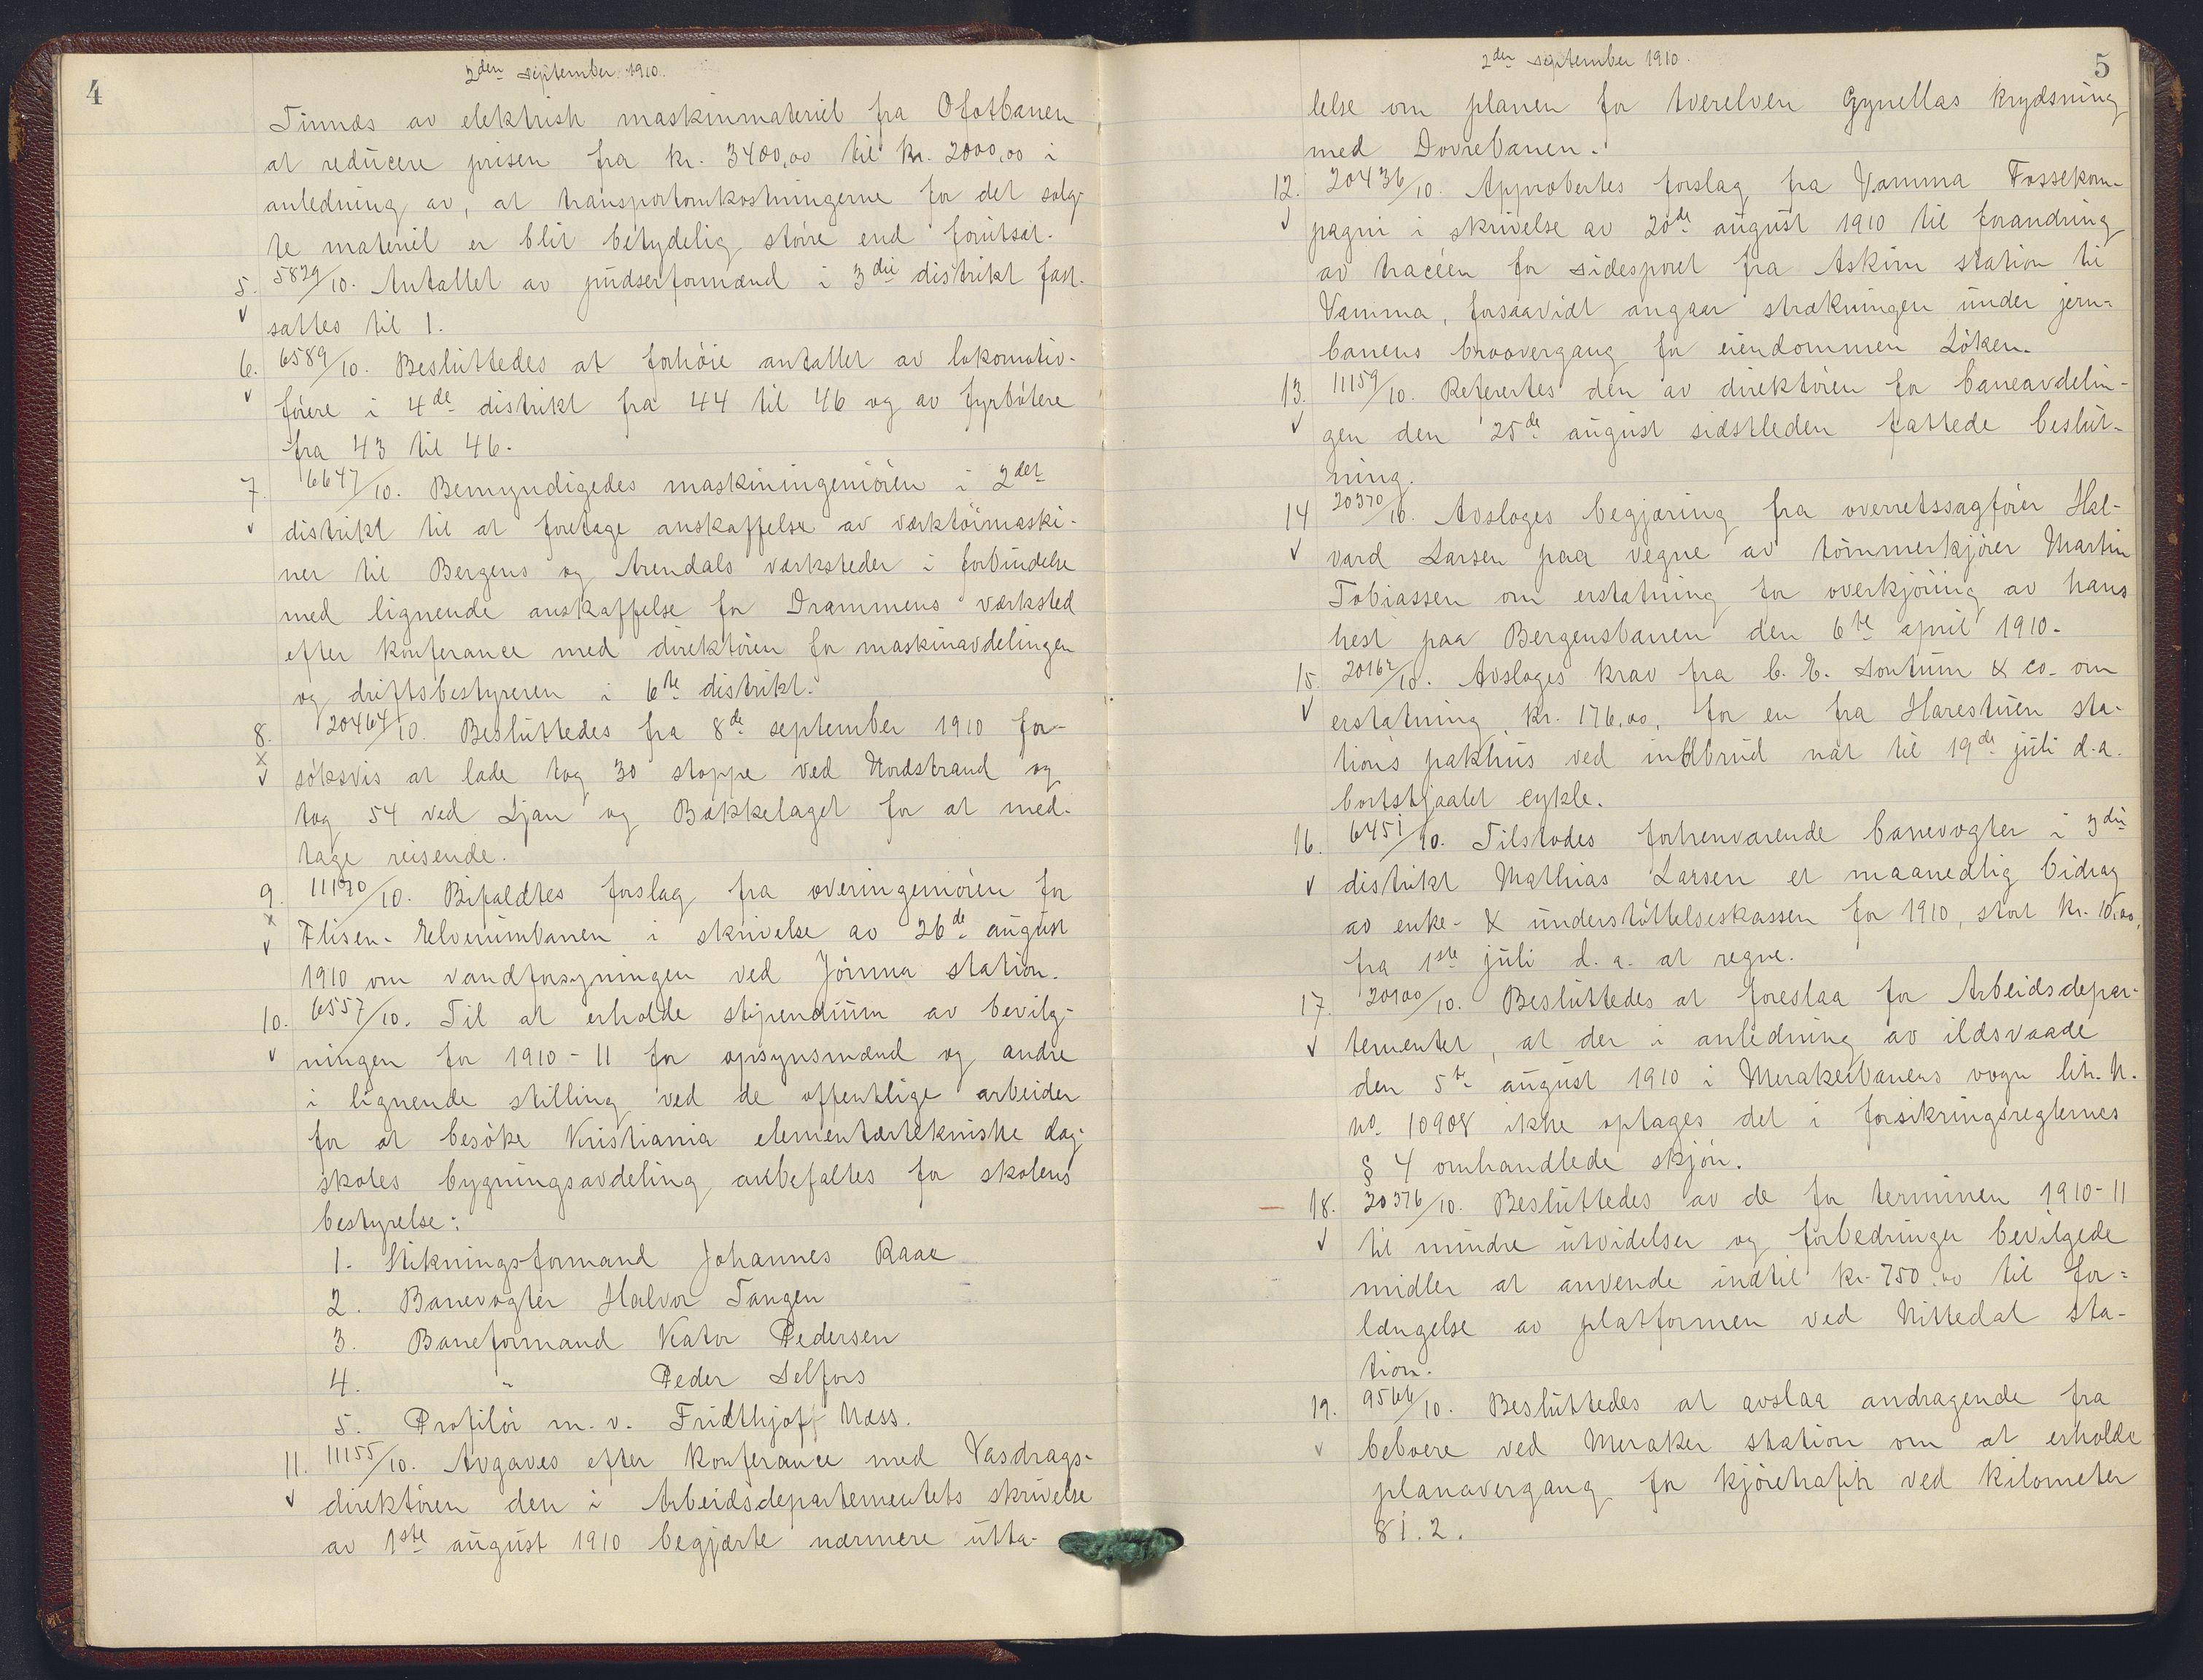 4
2den september 1910.
Tinnæs av elektrisk maskinmateriel fra Ofotbanen
at reducere prisen fra kr. 3400,00 til kr. 2000,00 i
anledning av, at transportomkostningerne for det solg-
te materiel er blit betydelig større end forutsat.
5. 5829/10. Antallet av pudserformænd i 3die distrikt fast-
sattes til 1.
6. 6589/10. Besluttedes at forhøie antallet av lokomotiv-
førere i 4de distrikt fra 44 til 46 og av fyrbøtere
fra 43 til 46.
7. 6647/10. Bemyndigedes maskiningeniøren i 2det
distrikt til at foretage anskaffelse av værktøimaski-
ner til Bergens og Arendals værksteder i forbindelse
med lignende anskaffelse for Drammens værksted
efter konferance med direktøren for maskinavdelingen
og driftsbestyreren i 6te distrikt.
8. 20464/10. Besluttedes fra 8de september 1910 for-
søksvis at lade tog 30 stoppe ved Nordstrand og
tog 54 ved Ljan og Bækkelaget for at med-
tage reisende.
9. 11170/10. Bifaldtes forslag fra overingeniøren for
Flisen-Elverumbanen i skrivelse av 26de august
1910 om vandforsyningen ved Jømna station.
10. 6557/10. Til at erholde stipendium av bevilg-
ningen for 1910-11 for opsynsmænd og andre
i lignende stilling ved de offentlige arbeider
for at besøke Kristiania elementærtekniske dag-
skoles bygningsavdeling anbefaltes for skolens
bestyrelse:
1. Stikningsformand Johannes Raae
2. Banevogter Halvor Tangen
3. Baneformand Kator Pedersen
4. " Peder Selfors
5. Profilør m. v. Fridthjoff Næss.
11. 11155/10. Avgaves efter konferance med Vasdrags-
direktøren den i Arbeidsdepartementets skrivelse
av 1ste august 1910 begjærte nærmere utta-
5
2den september 1910.
lelse om planen for tverelven Gynellas krydsning
med Dovrebanen.
12. 20436/10. Approbertes forslag fra Vamma Fossekom-
pagni i skrivelse av 20de august 1910 til forandring
av tracéen for sidesporet fra Askim station til
Vamma, forsaavidt angaar strækningen under jern-
banens broovergang for eiendommen Løken.
13. 11159/10. Refertes den av direktøren for baneavdelin-
gen den 25de august sidstleden fattede beslut-
ning.
14 20370/10. Avsloges begjæring fra overretssagfører Hal-
vard Larsen paa vegne av tømmerkjører Martin
Tobiassen om erstatning for overkjøring av hans
hest paa Bergensbanen den 6te april 1910.
15. 20162/10. Avsloges krav fra C. E. Sontum & co. om
erstatning, kr. 176,00, for en fra Harestuen sta-
tions pakhus ved indbrud nat til 19de juli d.a.
bortstjaalet cykle.
16. 6451/10. Tilstodes forhenværende banevogter i 3die
distrikt Mathias Larsen et maanedlig bidrag
av enke- & understøttelseskassen for 1910, stort kr. 10,00,
fra 1ste juli d. a. at regne.
17. 20900/10. Besluttedes at foreslaa for Arbeidsdepar-
tementet, at der i anledning av ildsvaade
den 5te august 1910 i Merakerbanens vogn litr. N.
no. 10908 ikke optages det i forsikringsreglernes
§ 4 omhandlede skjøn.
18. 20376/10. Besluttedes av de for terminen 1910-11
til mindre utvidelser og forbedringer bevilgede
midler at anvende indtil kr. 750.00 til for-
længelse av platformen ved Nittedal sta-
tion.
19. 9566/10. Besluttedes at avslaa andragende fra
beboere ved Meraker station om at erholde
planovergang for kjøretrafik ved kilometer
81.2.